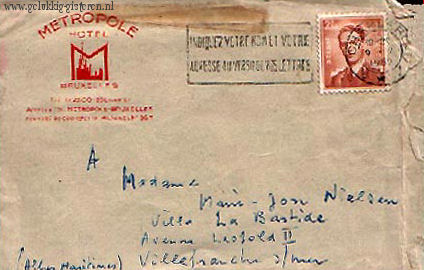 www.gelukkig-gisteren.nl
METROPOLE
HOTEL
M
BRUXELLES
INDIQUEZ VOTRE NOM ET VOTRE
ADRESSE AU VERSO DE VOS LETTRES
A
Madame
Marie-Jose Nielsen
Villa La Bastide
Avenue Leopold II
(Alpes Maritimes) Villefranche s/mer